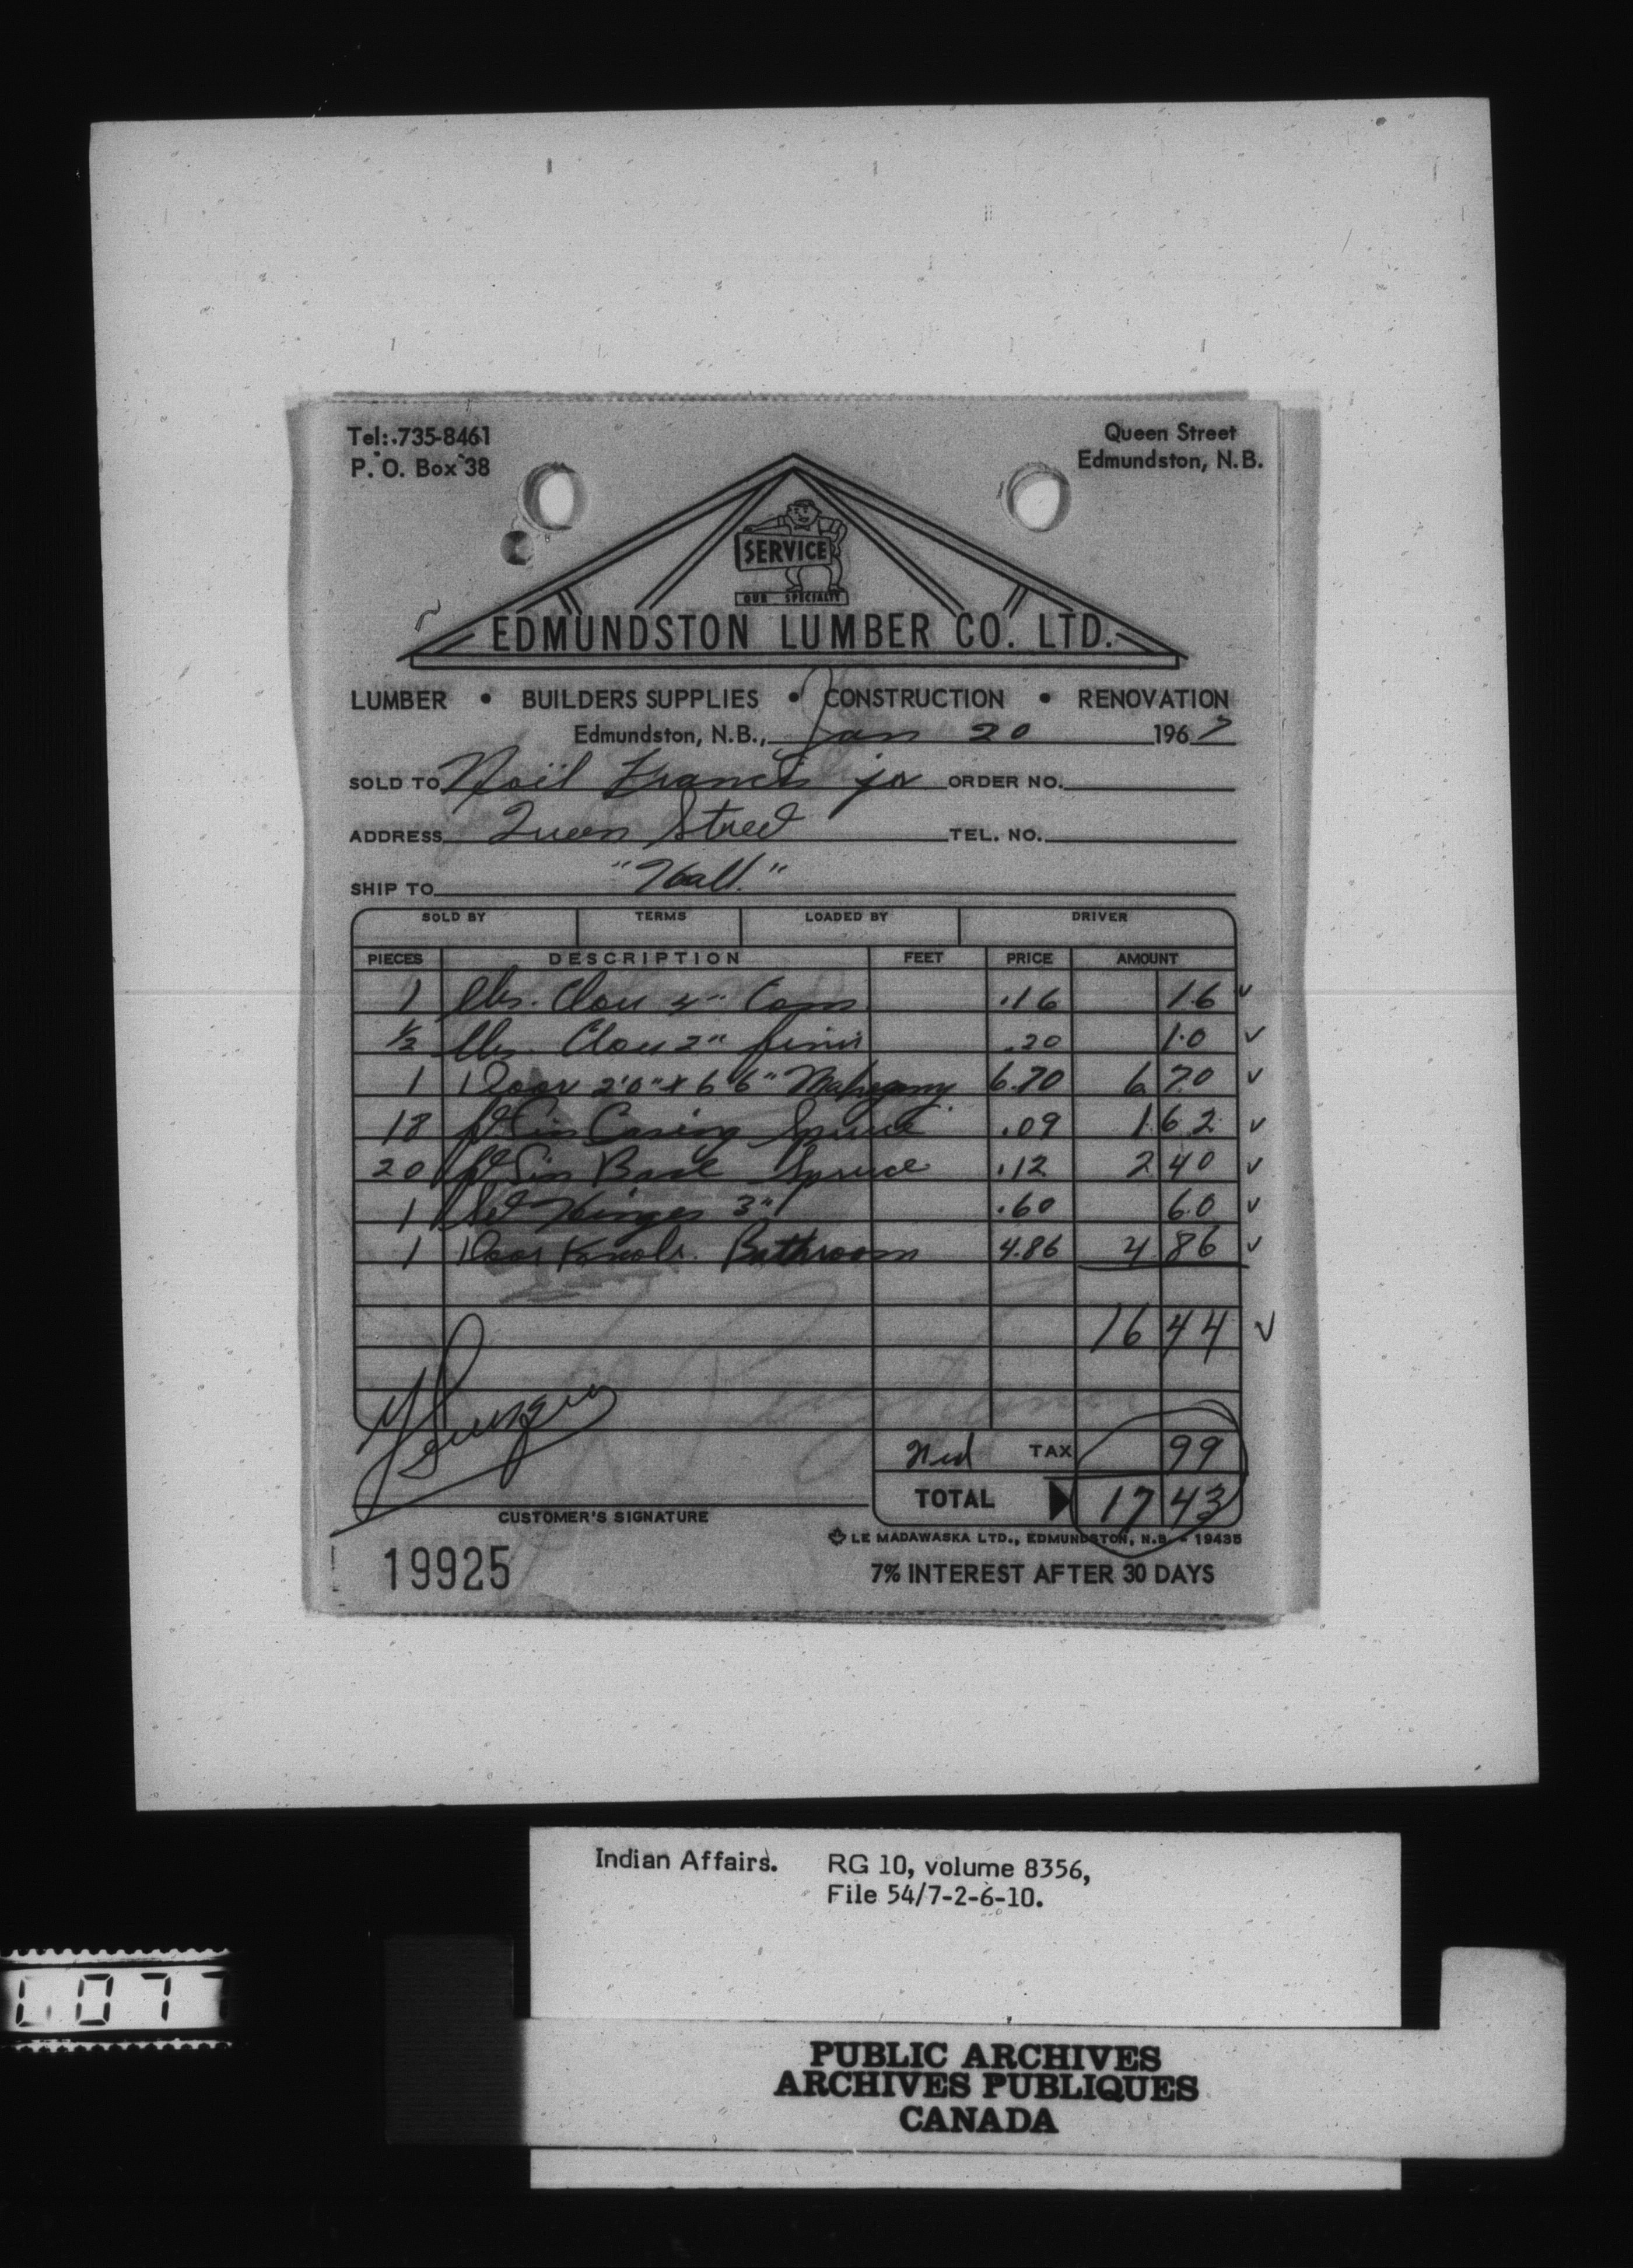 Tel: 735-8461
P. O. Box 38
Queen Street
Edmundston, N.B.
SERVICE
OUR SPECIALTY
EDMUNDSTON LUMBER CO. LTD.
LUMBER • BUILDERS SUPPLIES • CONSTRUCTION • RENOVATION
Edmundston, N.B., Jan 20 1967
SOLD TO Noël Francis jr ORDER NO.
ADDRESS Queen Street TEL. NO.
SHIP TO "Hall."
SOLD BY TERMS LOADED BY DRIVER
PIECES DESCRIPTION FEET PRICE AMOUNT
1 lbs. Clou 4" Com .16 16
1/2 lbs. Clou 2" finis .20 10
1 Door 2'0" x 6'6" Mahogany 6.70 6 70
18 ft Lin Casing Spruce .09 1 62
20 ft Lin Base Spruce .12 2 40
1 Set Hinges 3" .60 60
1 Door Knob. Bathroom 4.86 4 86
16 44
TAX 99
TOTAL 17 43
CUSTOMER'S SIGNATURE
LE MADAWASKA LTD., EDMUNDSTON, N.B. - 19435
19925
7% INTEREST AFTER 30 DAYS
Indian Affairs. RG 10, volume 8356,
File 54/7-2-6-10.
0077
PUBLIC ARCHIVES
ARCHIVES PUBLIQUES
CANADA